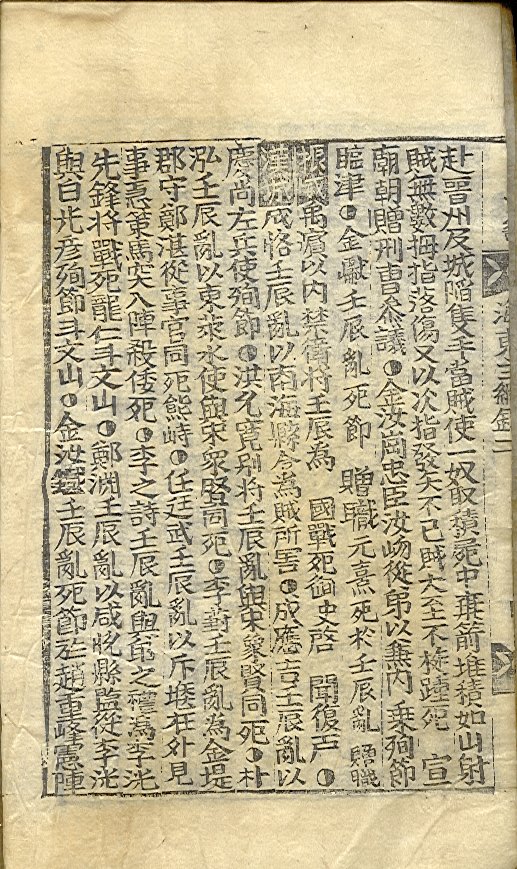 赴晋州及城陷隻手當賊使一奴取積屍中棄箭堆積如山射
賊無數拇指落傷又以次指發矢不已賊大至不旋踵死 宣
廟朝贈刑曹叅議 金汝崗忠臣汝岉從弟以兼內乘殉節
臨津 金 壬辰亂死節 贈職元熹死於壬辰亂 贈職
禹 以內禁衛將壬辰為 國戰死御史啓 聞復戶
成恪壬辰亂以南海縣令為賊所害 成應吉壬辰亂以
慶尚左兵使殉節 洪允寬別將壬辰亂與宋象賢同死 朴
泓壬辰亂以東萊水使與宋象賢同死 李 壬辰亂為金堤
郡守鄭湛從事官同死熊峙 任廷武壬辰亂以斥堠在外見
事急策馬突入陣殺倭死 李之詩壬辰亂與 之禮為李洸
先鋒将戰死龍仁斗文山 鄭淵壬辰亂以咸悅縣監從李洸
與白光彦殉節斗文山 金汝 壬辰亂死節於趙重峰憲陣
海東三綱錄二